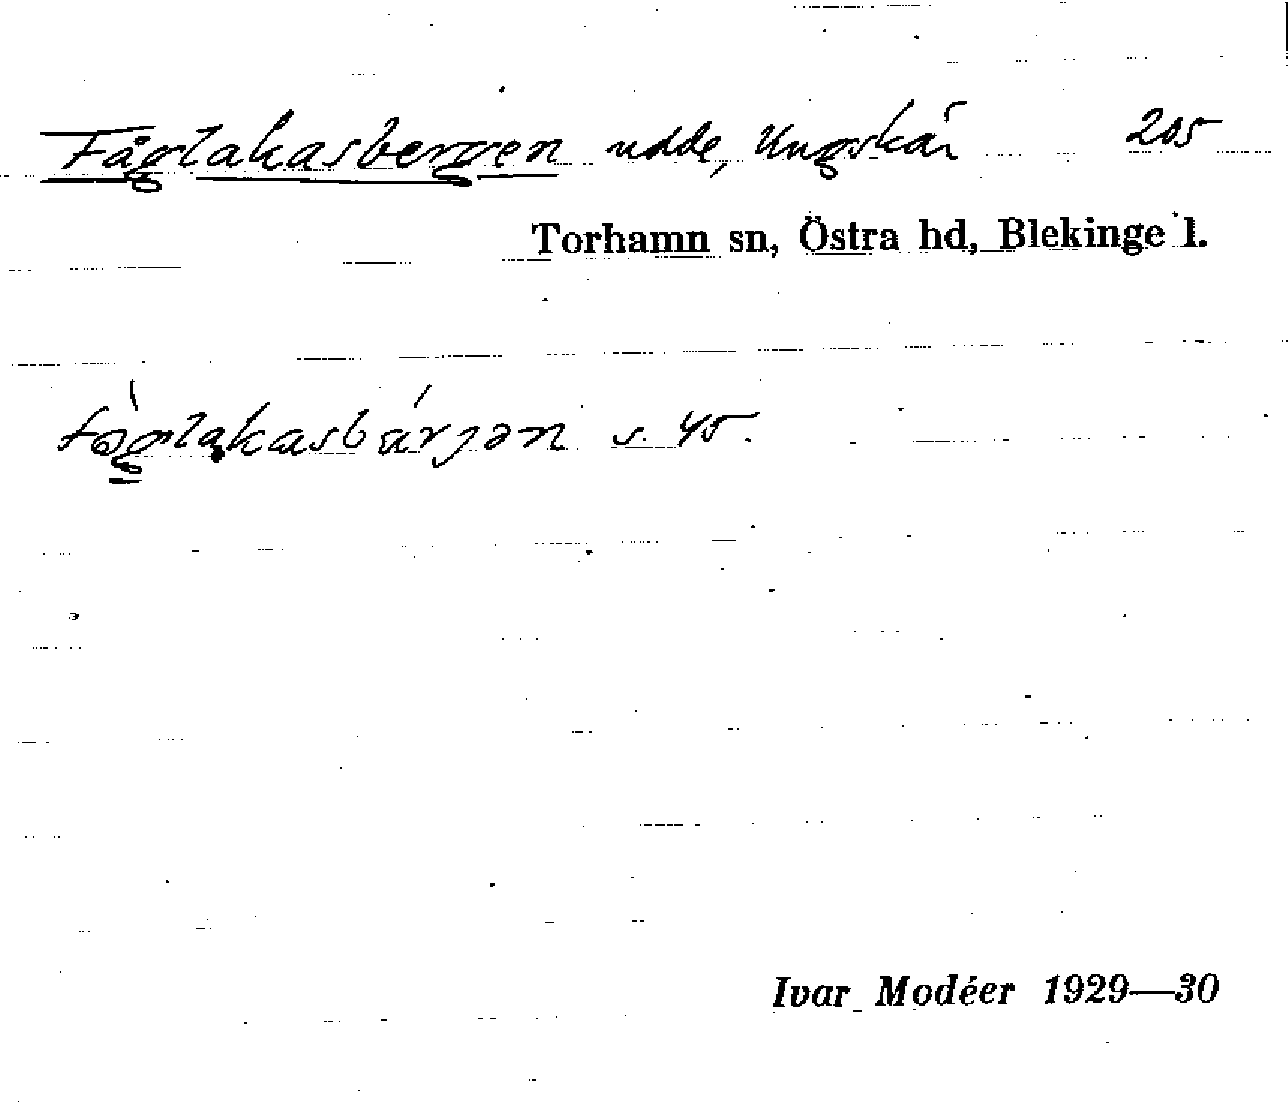 Fåglakasbergen udde, Ungskär 205
Torhamn sn, Östra hd, Blekinge l.
fòglakasbárjən s. 45.
Ivar Modéer 1929—30